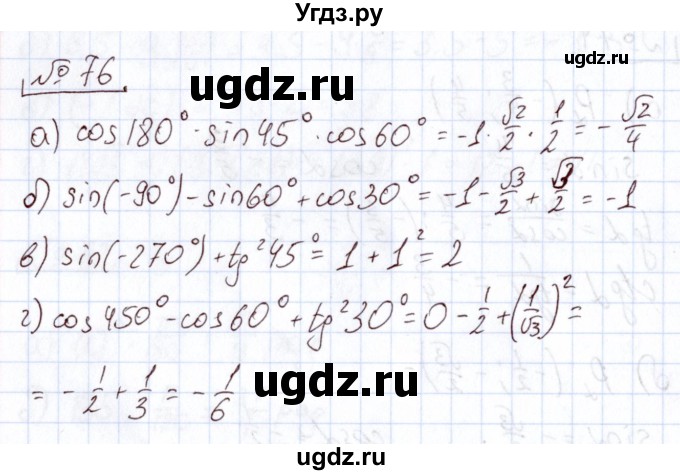 Угдз.ру
ugdz.ru
№ 76
ugdz.ru
а) cos180°·sin45°·cos60° = -1·√2/2·1/2 = -√2/4
б) sin(-90°)-sin60°+cos30° = -1-√3/2+√3/2 = -1
ugdz.ru
в) sin(-270°)+tg²45° = 1+1² = 2
г) cos450°-cos60°+tg²30° = 0-1/2+(1/√3)² =
ugdz.ru
= -1/2+1/3 = -1/6
ugdz.ru
ugdz.ru